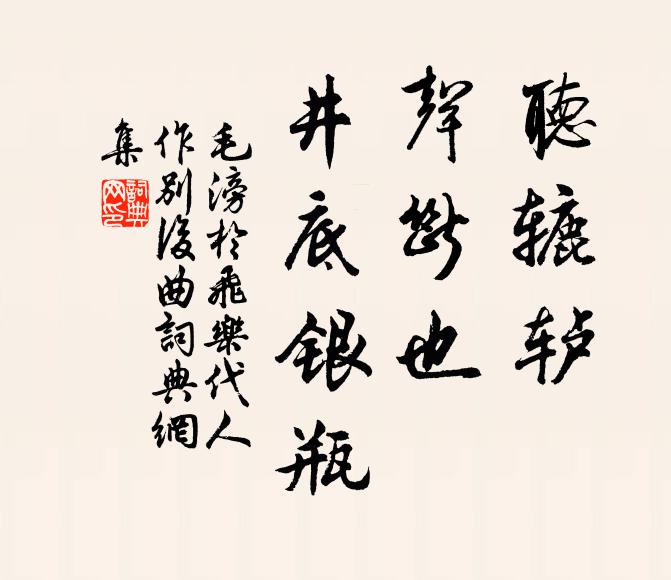 聽辘轳
聲斷也
井底銀瓶
毛滂於飛樂代人
作别後曲詞典網
集
詞典
网印